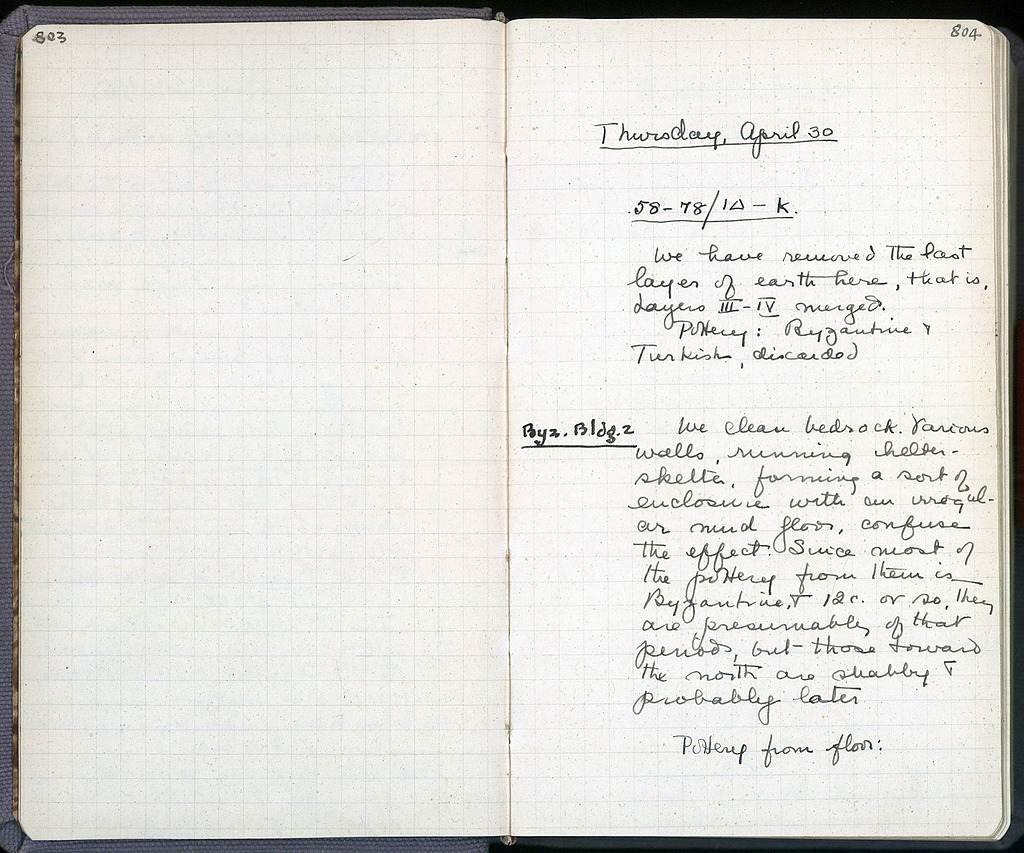 803
804
Thursday, April 30
58-78/ΙΔ - K.
We have removed the last
layer of earth here, that is,
Layers III-IV merged.
Pottery: Byzantine &
Turkish, discarded
Byz. Bldg. 2
We clean bedrock. Various
walls, running helter-
skelter, forming a sort of
enclosure with an irregul-
ar mud floor, confuse
the effect. Since most of
the pottery from them is
Byzantine, & 12c. or so, they
are presumably of that
period, but those toward
the north are shabby &
probably later
Pottery from floor: